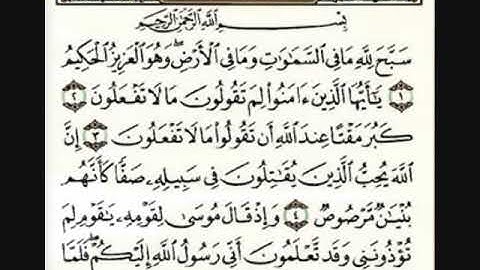 بِسْمِ اللَّهِ الرَّحْمَٰنِ الرَّحِيمِ
سَبَّحَ لِلَّهِ مَا فِي السَّمَٰوَٰتِ وَمَا فِي الْأَرْضِ ۖ وَهُوَ الْعَزِيزُ الْحَكِيمُ
١ يَٰٓأَيُّهَا الَّذِينَ ءَامَنُوا لِمَ تَقُولُونَ مَا لَا تَفْعَلُونَ ٢
كَبُرَ مَقْتًا عِندَ اللَّهِ أَن تَقُولُوا مَا لَا تَفْعَلُونَ ٣ إِنَّ
اللَّهَ يُحِبُّ الَّذِينَ يُقَٰتِلُونَ فِي سَبِيلِهِۦ صَفًّا كَأَنَّهُم
بُنْيَٰنٌ مَّرْصُوصٌ ٤ وَإِذْ قَالَ مُوسَىٰ لِقَوْمِهِۦ يَٰقَوْمِ لِمَ
تُؤْذُونَنِي وَقَد تَّعْلَمُونَ أَنِّي رَسُولُ اللَّهِ إِلَيْكُمْ ۖ فَلَمَّا